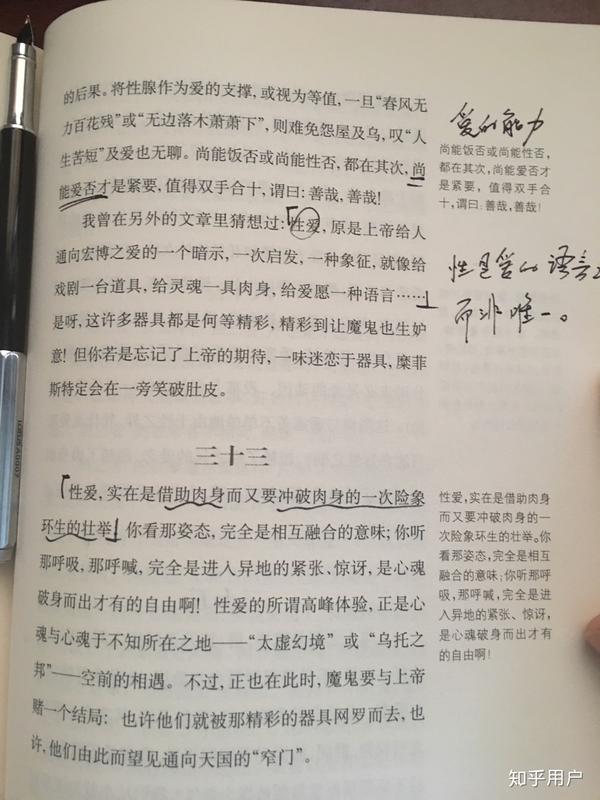 的后果。将性腺作为爱的支撑，或视为等值，一旦“春风无
力百花残”或“无边落木萧萧下”，则难免怨屋及乌，叹“人
生苦短”及爱也无聊。尚能饭否或尚能性否，都在其次，尚
能爱否才是紧要，值得双手合十，谓曰：善哉，善哉！
我曾在另外的文章里猜想过：性爱，原是上帝给人
通向宏博之爱的一个暗示，一次启发，一种象征，就像给
戏剧一台道具，给灵魂一具肉身，给爱愿一种语言……
是呀，这许多器具都是何等精彩，精彩到让魔鬼也生妒
意！但你若是忘记了上帝的期待，一味迷恋于器具，糜菲
斯特定会在一旁笑破肚皮。
三十三
性爱，实在是借助肉身而又要冲破肉身的一次险象
环生的壮举。你看那姿态，完全是相互融合的意味；你听
那呼吸，那呼喊，完全是进入异地的紧张、惊讶，是心魂
破身而出才有的自由啊！性爱的所谓高峰体验，正是心
魂与心魂于不知所在之地——“太虚幻境”或“乌托之
邦”——空前的相遇。不过，正也在此时，魔鬼要与上帝
赌一个结局：也许他们就被那精彩的器具网罗而去，也
许，他们由此而望见通向天国的“窄门”。
爱的能力
尚能饭否或尚能性否，
都在其次，尚能爱否才
是紧要，值得双手合
十，谓曰：善哉，善哉！
性是爱的语言之
而非唯一。
性爱，实在是借助肉身
而又要冲破肉身的一
次险象环生的壮举。你
看那姿态，完全是相互
融合的意味；你听那呼
吸，那呼喊，完全是进
入异地的紧张、惊讶，
是心魂破身而出才有
的自由啊！
知乎用户